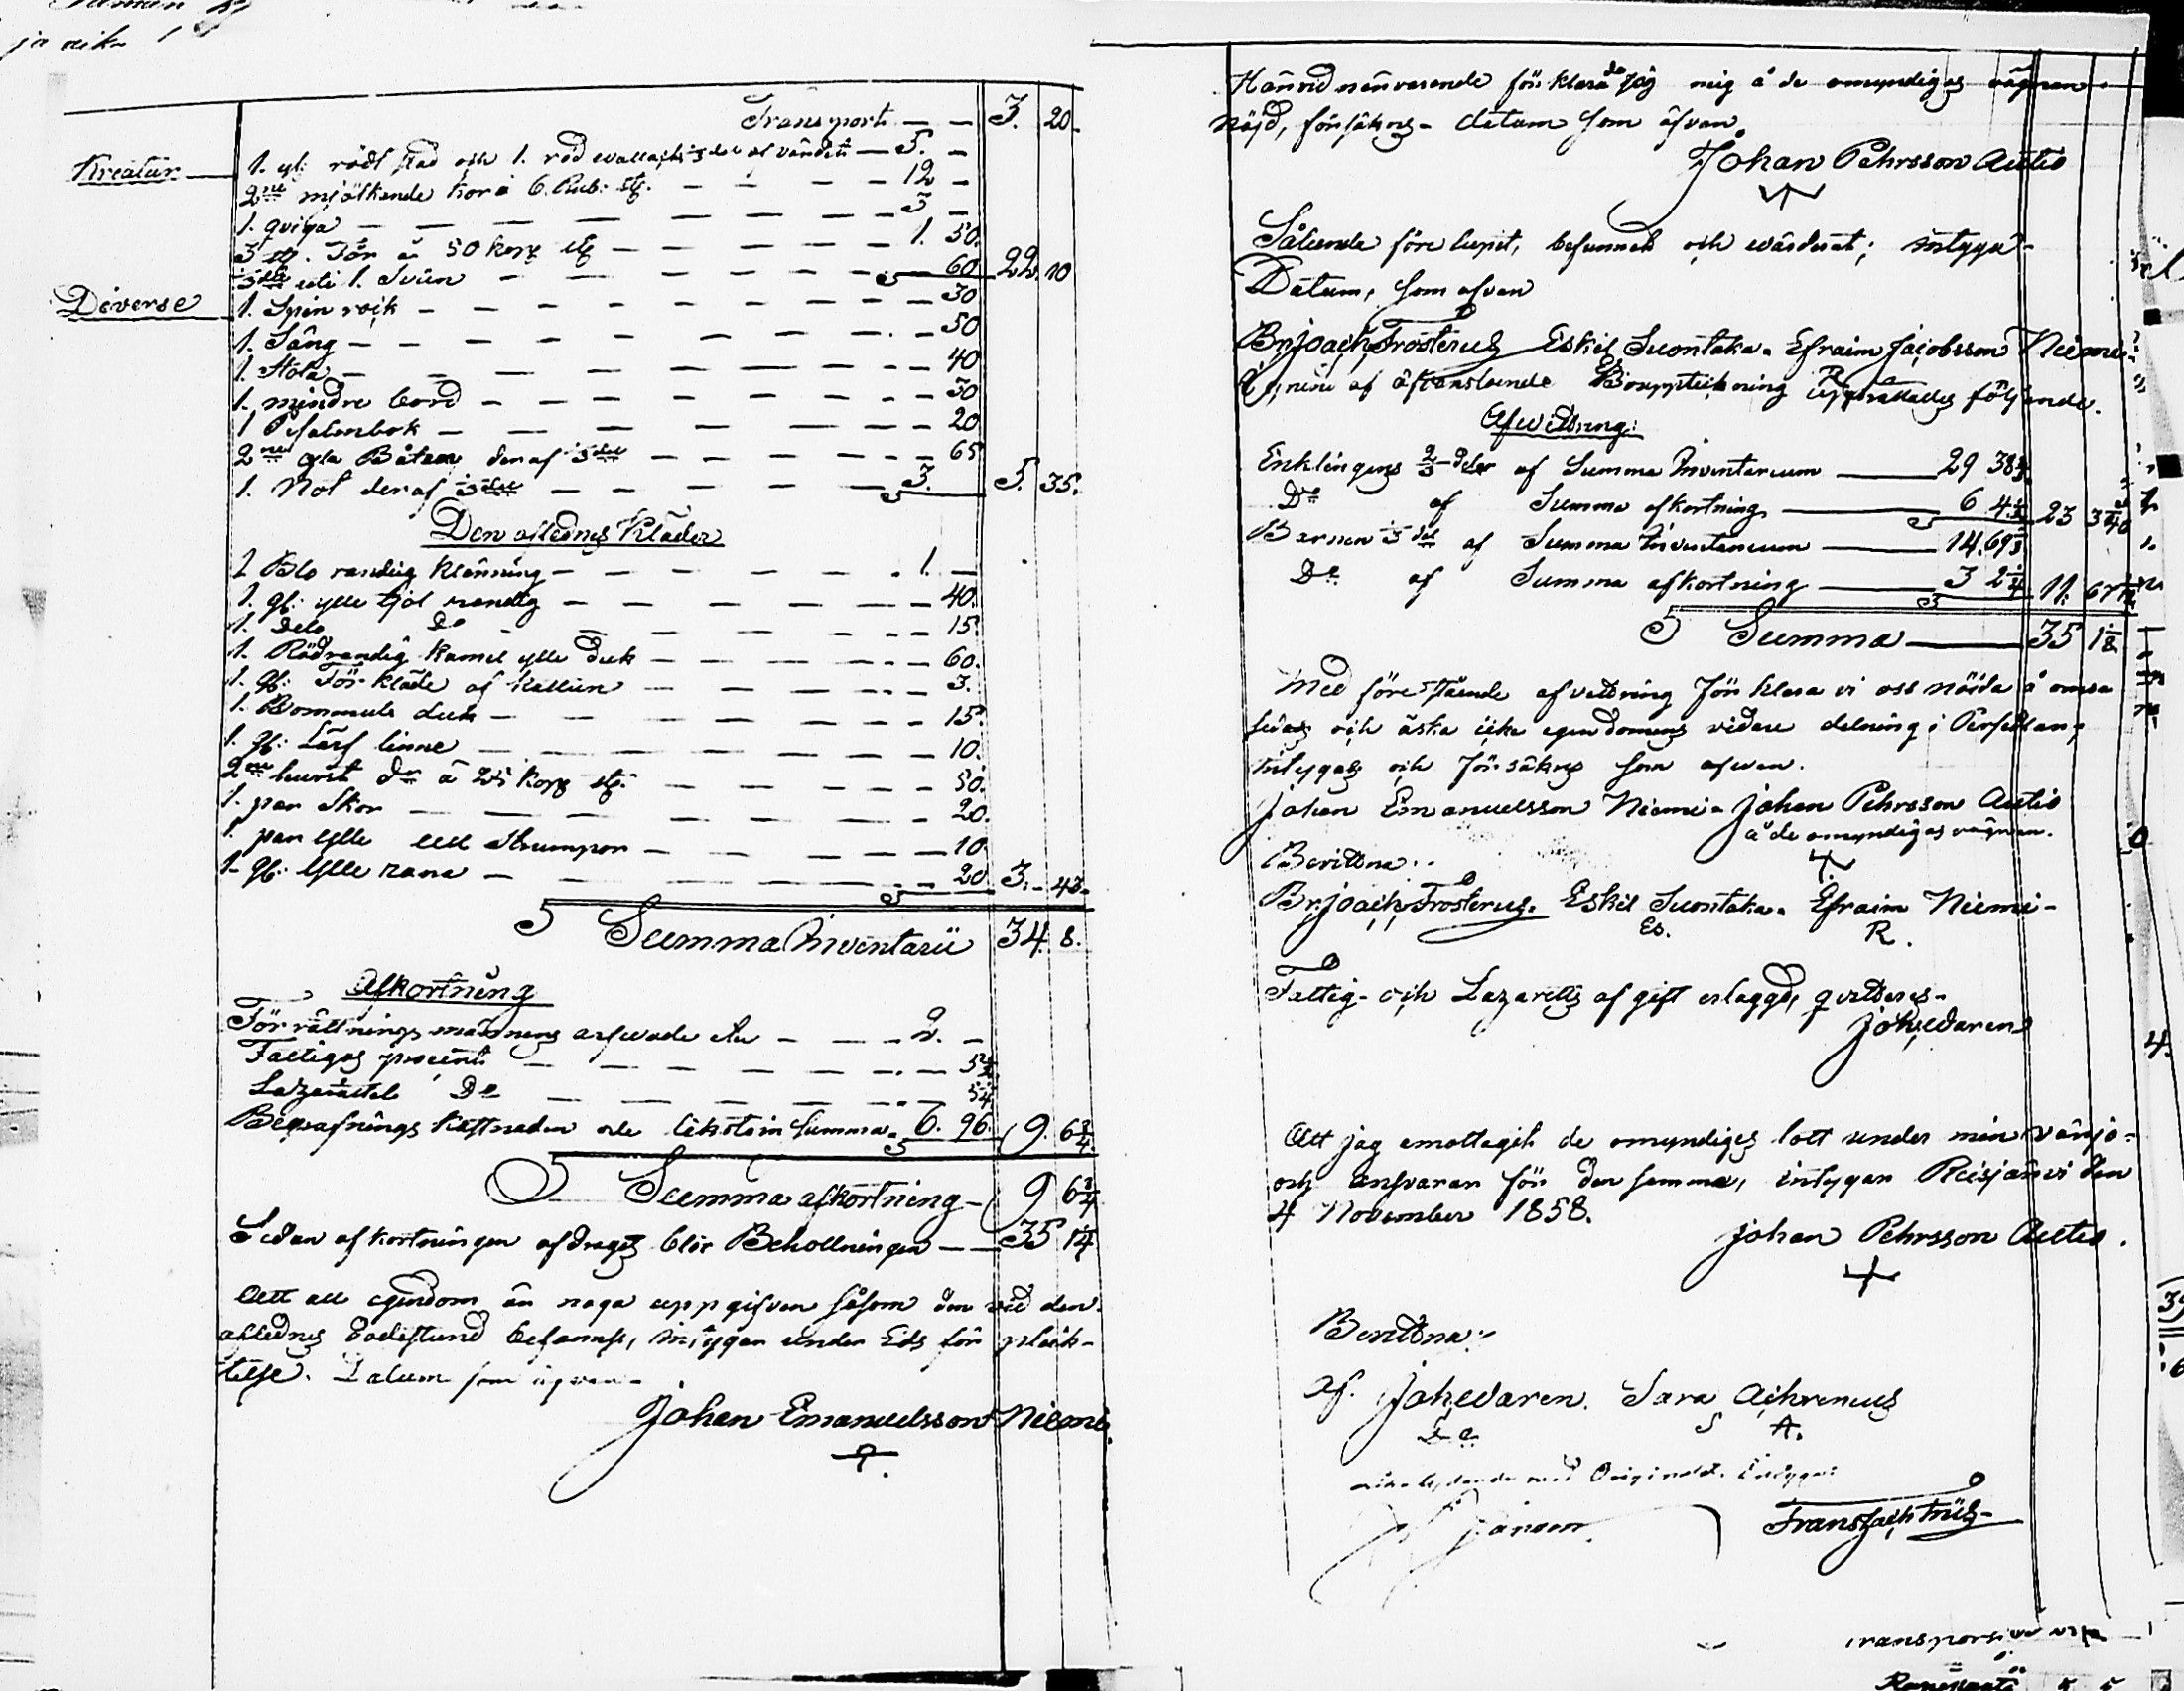 Transport — — 3. 20
Kreatur 1. gl: rödt stod och 1. röd wallach af värdet — 5. —
2ne mjölkande kor à 6. Rub: st. — — — 12 —
1. qviga — — — — 3 —
3 st. Får à 50 kop st — — — 1. 50.
uti 1. Svin — — — 60 22. 10
Diverse 1. Spin rock — — — 30
1. Säng — — — 50
1. Stola — — — 40
1. mindre bord — — — 50
1 Psalmbok — — — 20
2ne gla Båtar deraf — — — 65
1. Not deraf — — — 3. 5. 35.
Den aflednes Kläder
1 Blo randig klänning — — — 1. —
1. gl: ylle kjol randig — — — 40.
1. Dito Do — — — 15
1. Rödrandig kamel ylle duk — — — 60.
1. gl: För kläde af Kattun — — — 3.
1. Bommuls duk — — — 15.
1. gl: Lärf linne — — — 10.
2ne hurst do à 25 kop st. — — — 50.
1. par Skor — — — 20.
1. par ylle Strumpor — — — 10.
1. gl: Ylle — — — 20 3. 43.
Summa Inventarii 34. 8.
Afkortning
Förrättnings männens arfwode — — — 2. —
Fattiges procent — — —
Lazarettet Do — — —
Begrafnings kostnaden Summa 6. 96. 9. 6 3/4.
Summa afkortning — 9 6 3/4
Sedan afkortningen afdraget blir Behollningen — — 35 1 1/4
Att all egendom är noga uppgifven såsom den vid den
aflednes Dödsstund befanns, intygar under Eds för plick-
telse. Datum som
Johan Emanuelsson Niemi.
Härvid närvarande förklarade jag mig å de omyndiges vägnar
nöjd, försäkras - datum som åfvan
Johan Pehrsson Autio
Sålunda före lupit, befunnet och wärderat; intyga -
Datum, som ofvan
Br. Joach Frosterus Eskil Suontaka. Efraim Jacobsson Niemi
af åfvanstående Bouppteckning Upprättades följande.
Afwittring:
Enklingens 2/3 delar af Summa Inventarium — 29 38
Do af Summa afkortning — 6 23 3
Barnen del af Summa Inventarium — 14. 69
Do af Summa afkortning — 3 2 11. 67
Summa — 35 1
Med förestående afvittring förklara vi oss nöjda å omse
sidor och äska icke egendomens vidare delning i
intygas och försäkras som ofvan.
Johan Emanuelsson Niemi - Johan Pehrsson Autio
å de omyndigas vägnar.
Bevittna:
Br. Joach Frosterus. Eskil Suontaka. Efraim Niemi -
Es. R.
Fattig - och Lazaretts afgift erlagd, qvitteras -
Joh. Edaren
Att jag emottagit de omyndiges lott under min vårjo -
och ansvarar för den samma, intygar Reisjärvi den
4 November 1858.
Johan Pehrsson Autio.
Bevittna:
af. Joh. Edaren. Sara Achrenius
S A.
med Originalet. Intygar